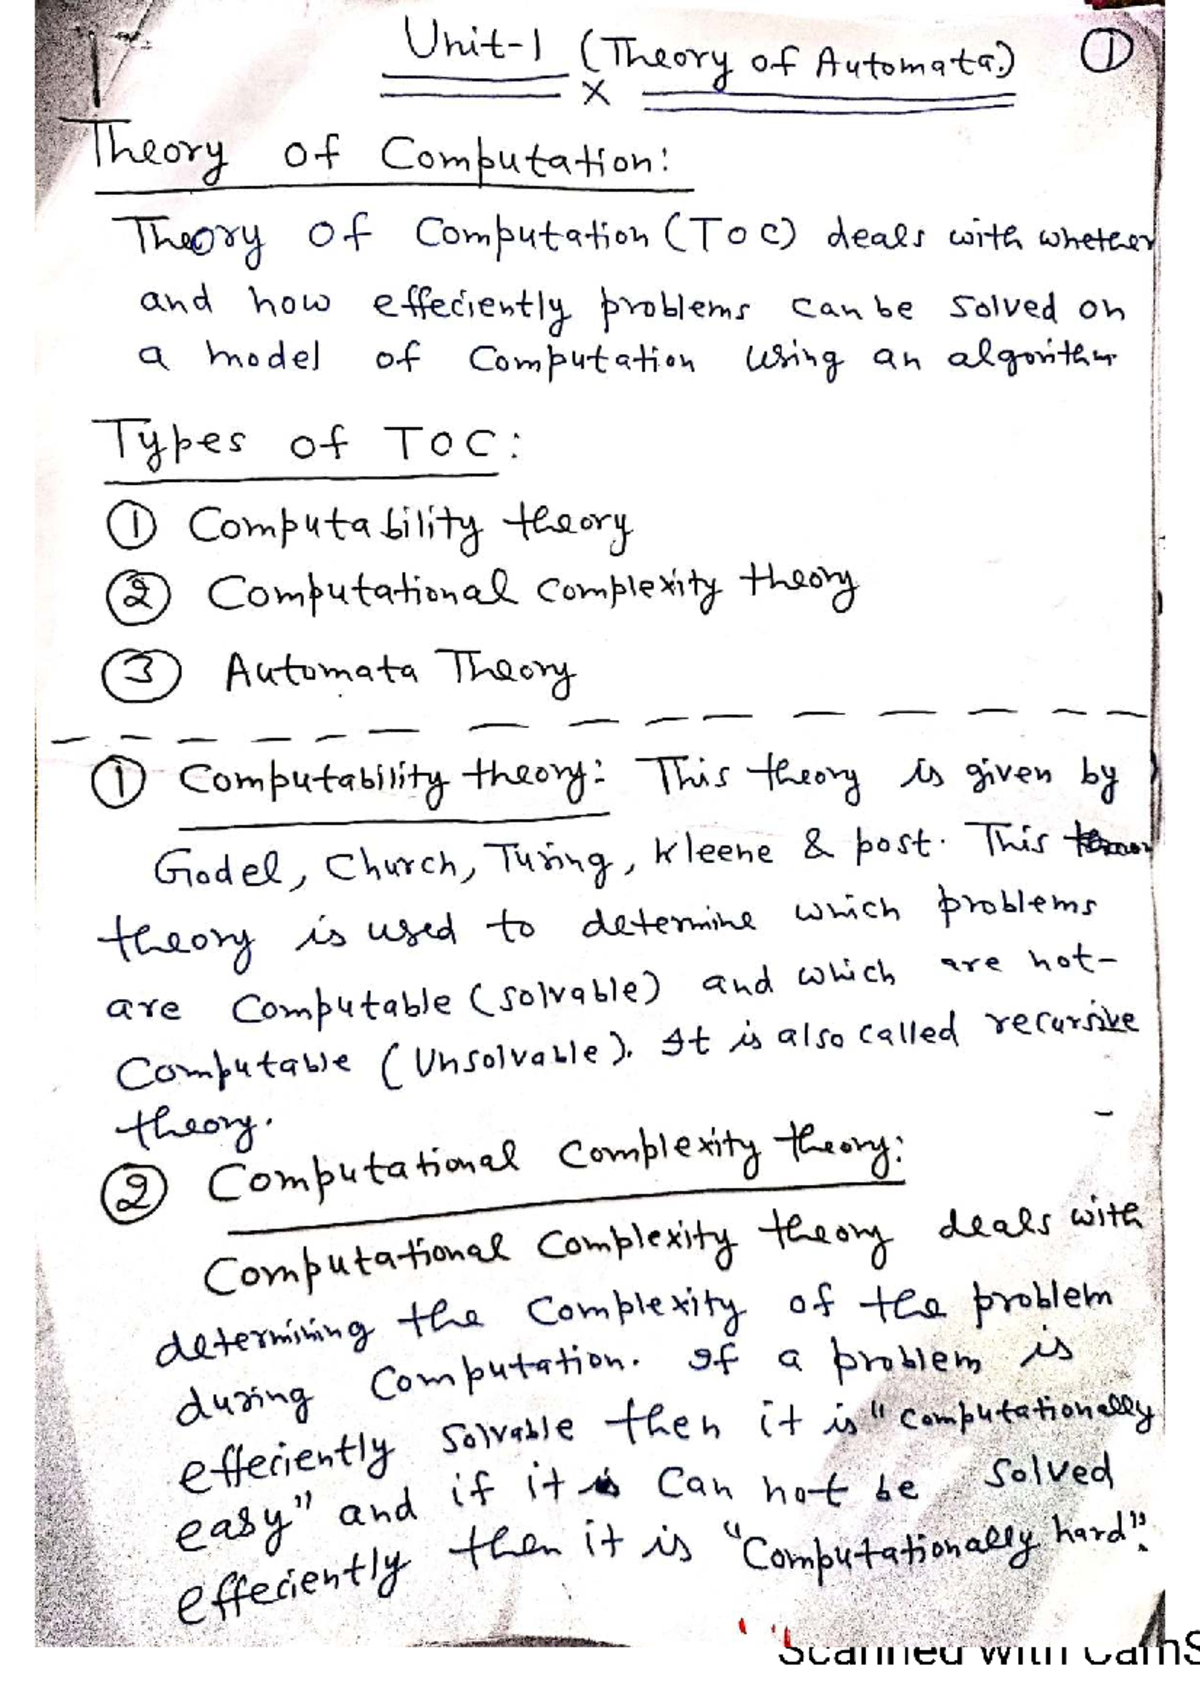 Unit-1 (Theory of Automata.) ①
X
Theory of Computation:
Theory of Computation (TOC) deals with whether
and how effeciently problems can be solved on
a model of Computation using an algorithm
Types of TOC:
① Computability theory
② Computational complexity theory
③ Automata Theory
① Computability theory: This theory is given by
Godel, Church, Turing, Kleene & post. This
theory is used to determine which problems
are Computable (solvable) and which are not-
Computable (Unsolvable). It is also called recursive
theory.
② Computational Complexity theory:
Computational Complexity theory deals with
determining the Complexity of the problem
during Computation. If a problem is
effeciently solvable then it is "computationally
easy" and if it can not be solved
effeciently then it is "Computationally hard".
Scanned with CamS